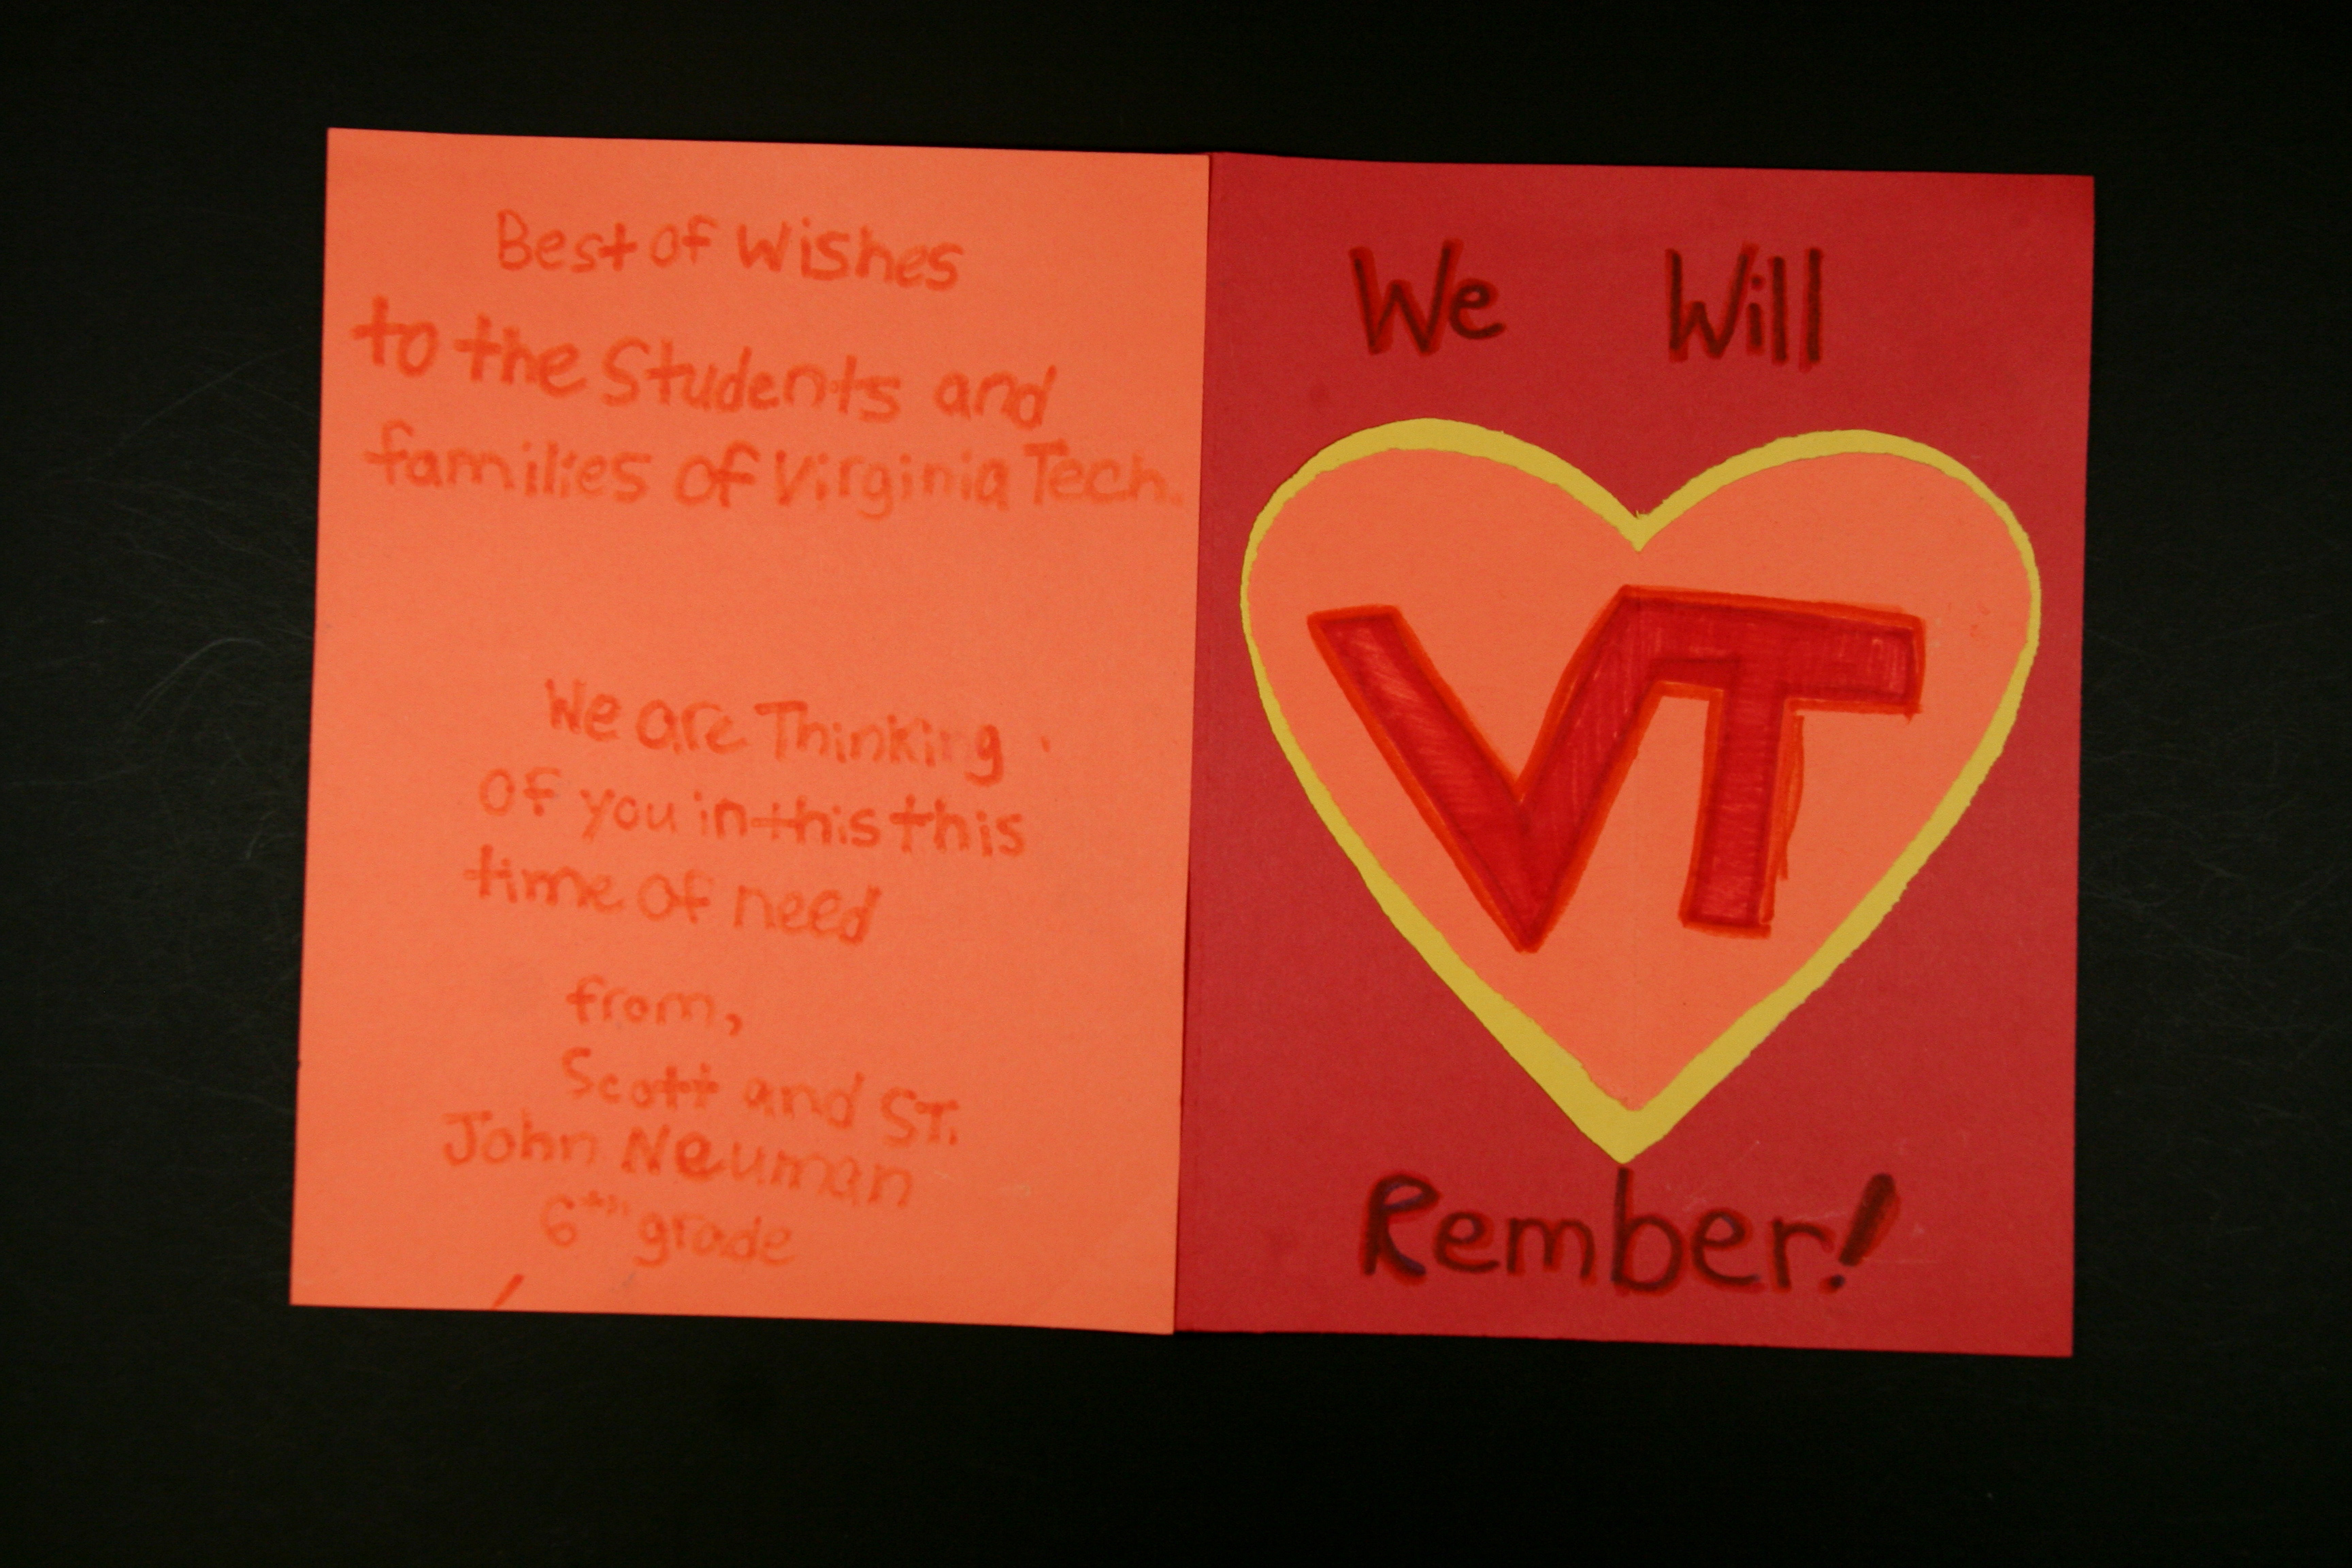 Best of Wishes
to the Students and
families of Virginia Tech.
We are Thinking
of you in this this
time of need
from,
Scott and ST.
John Neuman
6th grade
We Will
VT
Rember!